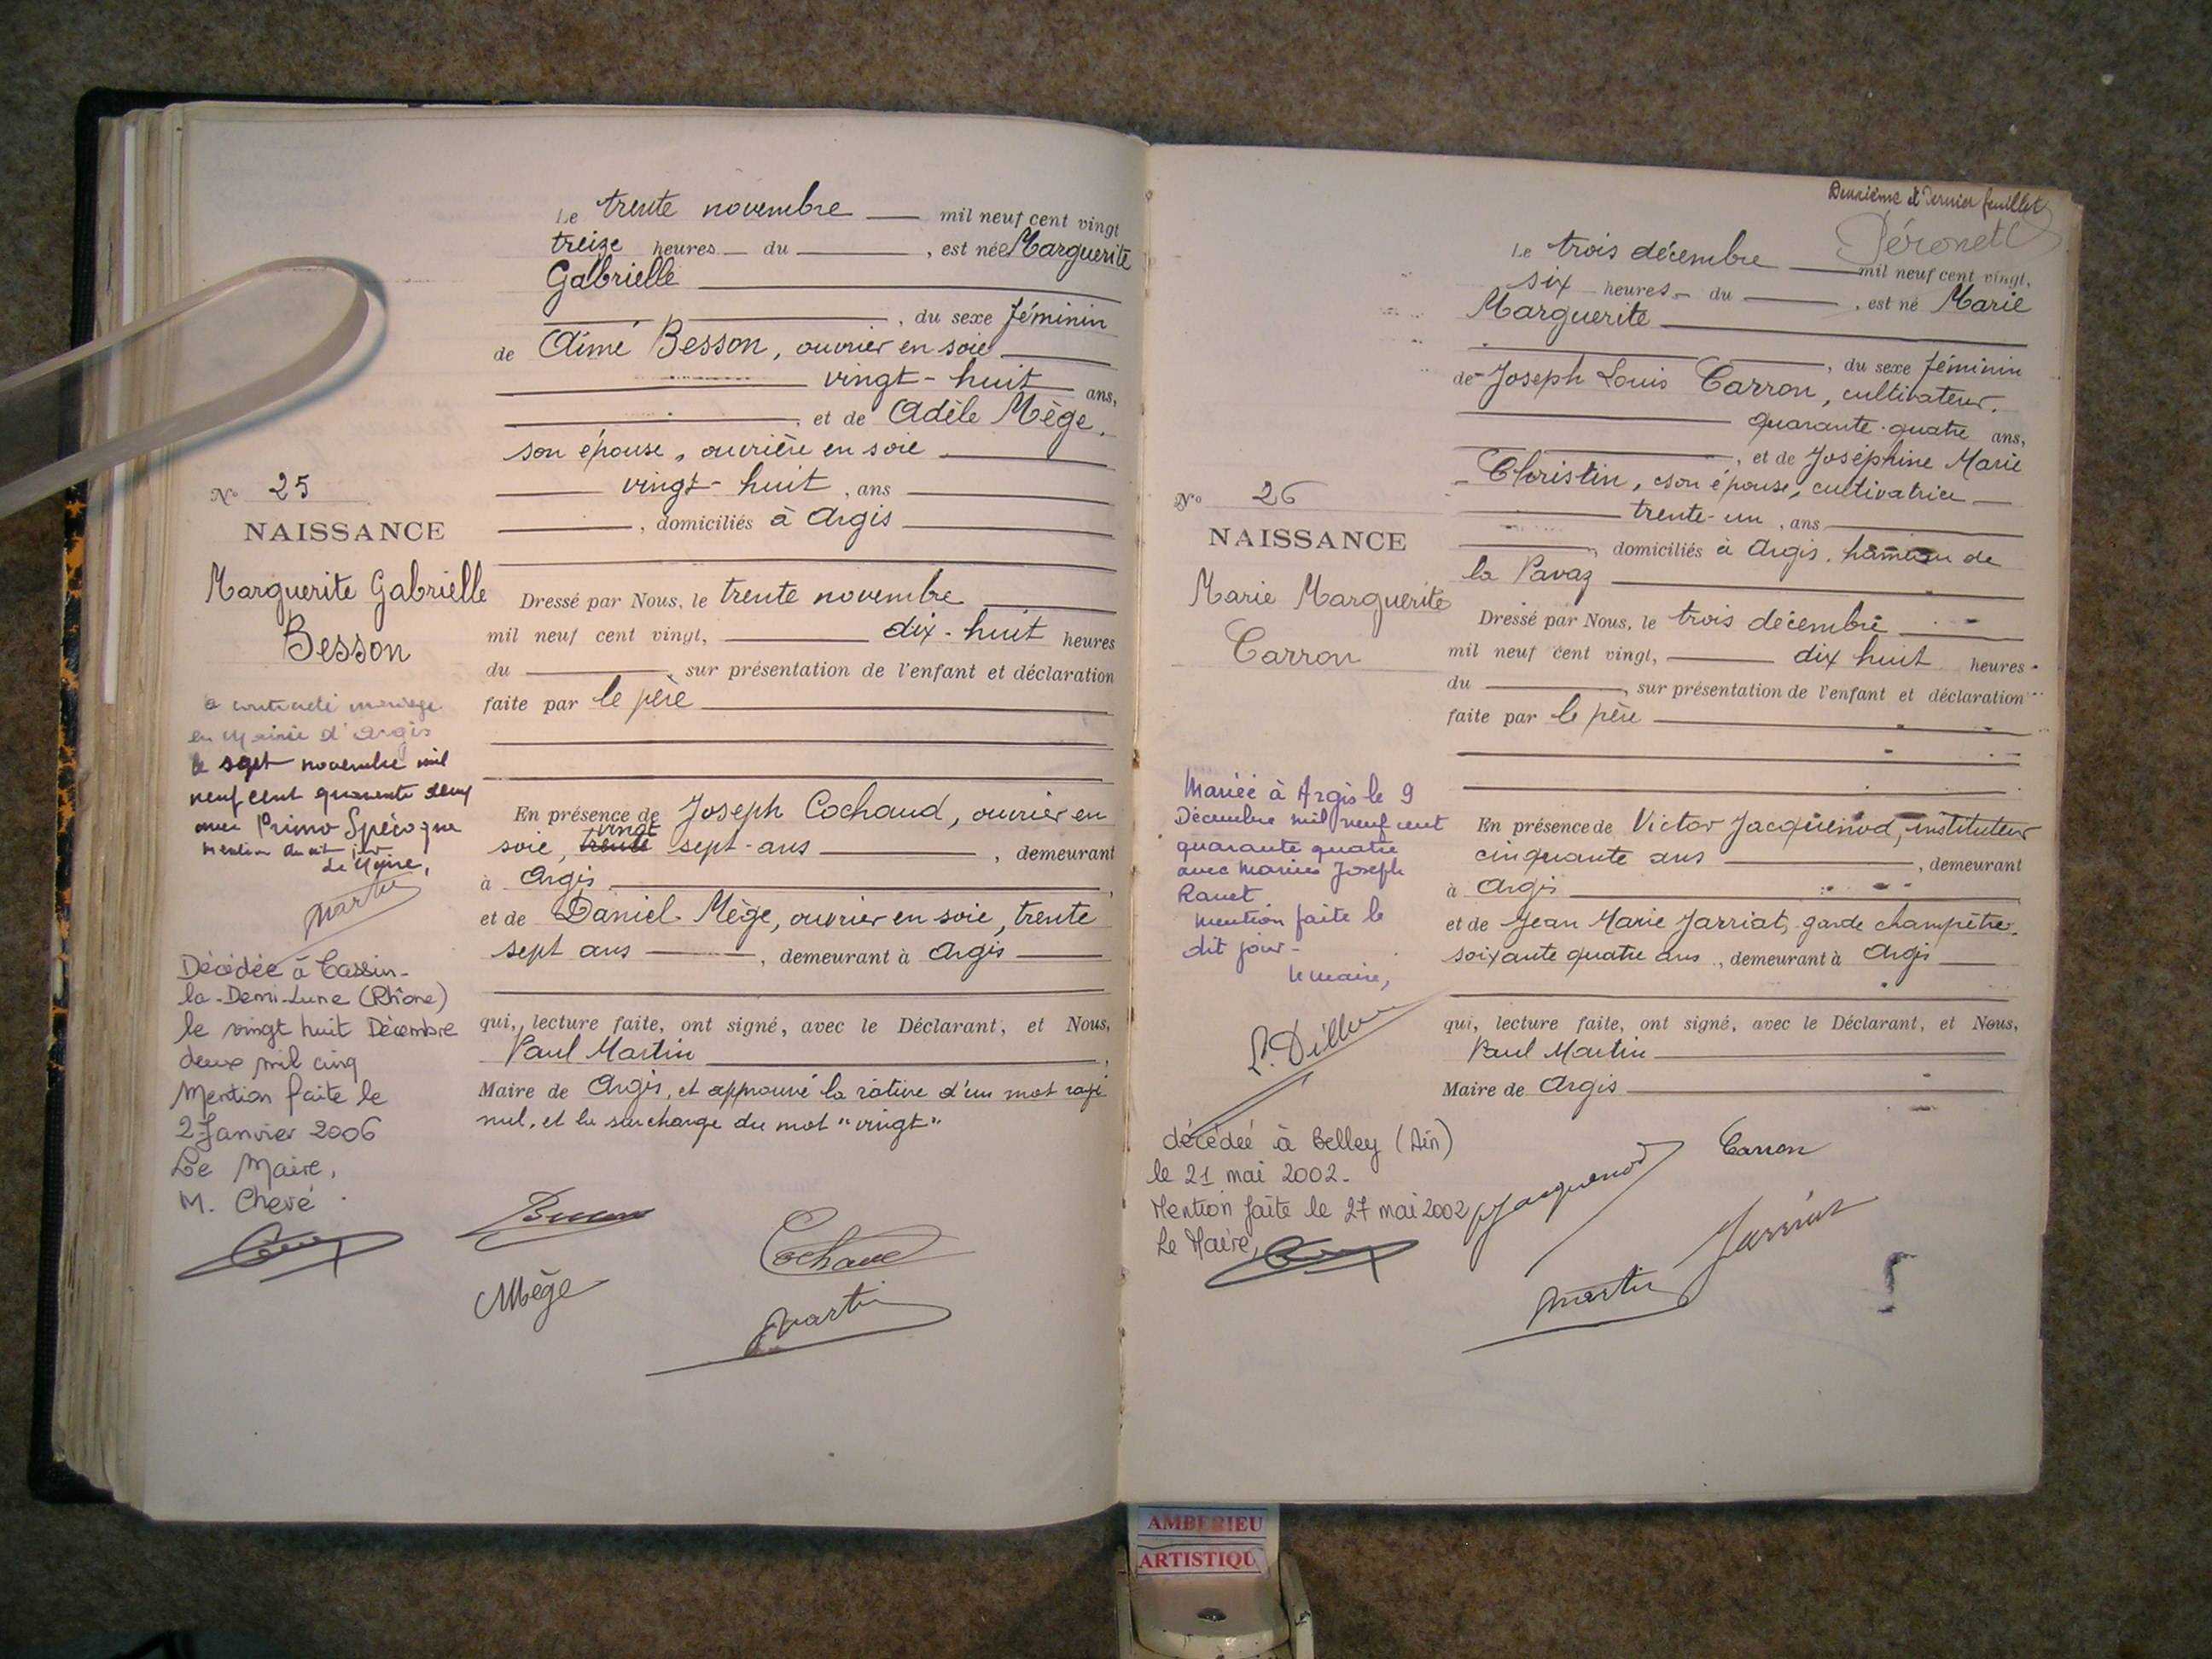 Le trente novembre mil neuf cent vingt
treize heures du , est née Marguerite
Gabrielle
, du sexe féminin
de Aimé Besson, ouvrier en soie
vingt-huit ans,
, et de Adèle Mège,
son épouse, ouvrière en soie
vingt-huit , ans
, domiciliés à Argis
N° 25
NAISSANCE
Marguerite Gabrielle
Besson
Dressé par Nous, le trente novembre
mil neuf cent vingt, dix-huit heures
du , sur présentation de l'enfant et déclaration
faite par le père
a contracté mariage
en Mairie d'Argis
le sept novembre mil
neuf cent quarante deux
avec Primo Spécogna
Mention du dit jour
Le Maire,
Martin
En présence de Joseph Cochaud, ouvrier en
vingt
soie, trente sept-ans , demeurant
à Argis ,
et de Daniel Mège, ouvrier en soie, trente
sept ans , demeurant à Argis
Décédée à Tassin-
la-Demi-Lune (Rhône)
le vingt huit Décembre
deux mil cinq
Mention faite le
2 Janvier 2006
Le Maire,
M. Chevé
qui, lecture faite, ont signé, avec le Déclarant, et Nous,
Paul Martin ,
Maire de Argis, et approuvé la rature d'un mot rayé
nul, et la surcharge du mot "vingt"
Besson
Cochaud
Mège
Martin
Deuxième et Dernier feuillet
Péronet
Le trois décembre mil neuf cent vingt,
six heures du , est né Marie
Marguerite
, du sexe féminin
de Joseph Louis Carron, cultivateur,
quarante-quatre ans,
, et de Joséphine Marie
Christin, son épouse, cultivatrice
trente-un , ans
, domiciliés à Argis, hameau de
la Pavaz
N° 26
NAISSANCE
Marie Marguerite
Carron
Dressé par Nous, le trois décembre
mil neuf cent vingt, dix huit heures
du , sur présentation de l'enfant et déclaration
faite par le père
Mariée à Argis le 9
Décembre mil neuf cent
quarante quatre
avec Marius Joseph
mention faite le
dit jour-
le maire,
En présence de Victor Jacquenod, instituteur
cinquante ans , demeurant
à Argis
et de Jean Marie Jarriat, garde champêtre,
soixante quatre ans , demeurant à Argis
qui, lecture faite, ont signé, avec le Déclarant, et Nous,
Paul Martin
Maire de Argis
décédée à Belley (Ain)
le 21 mai 2002.
Mention faite le 27 mai 2002
Le Maire,
Jacquenod
Carron
Jarriat
Martin
AMBERIEU
ARTISTIQU